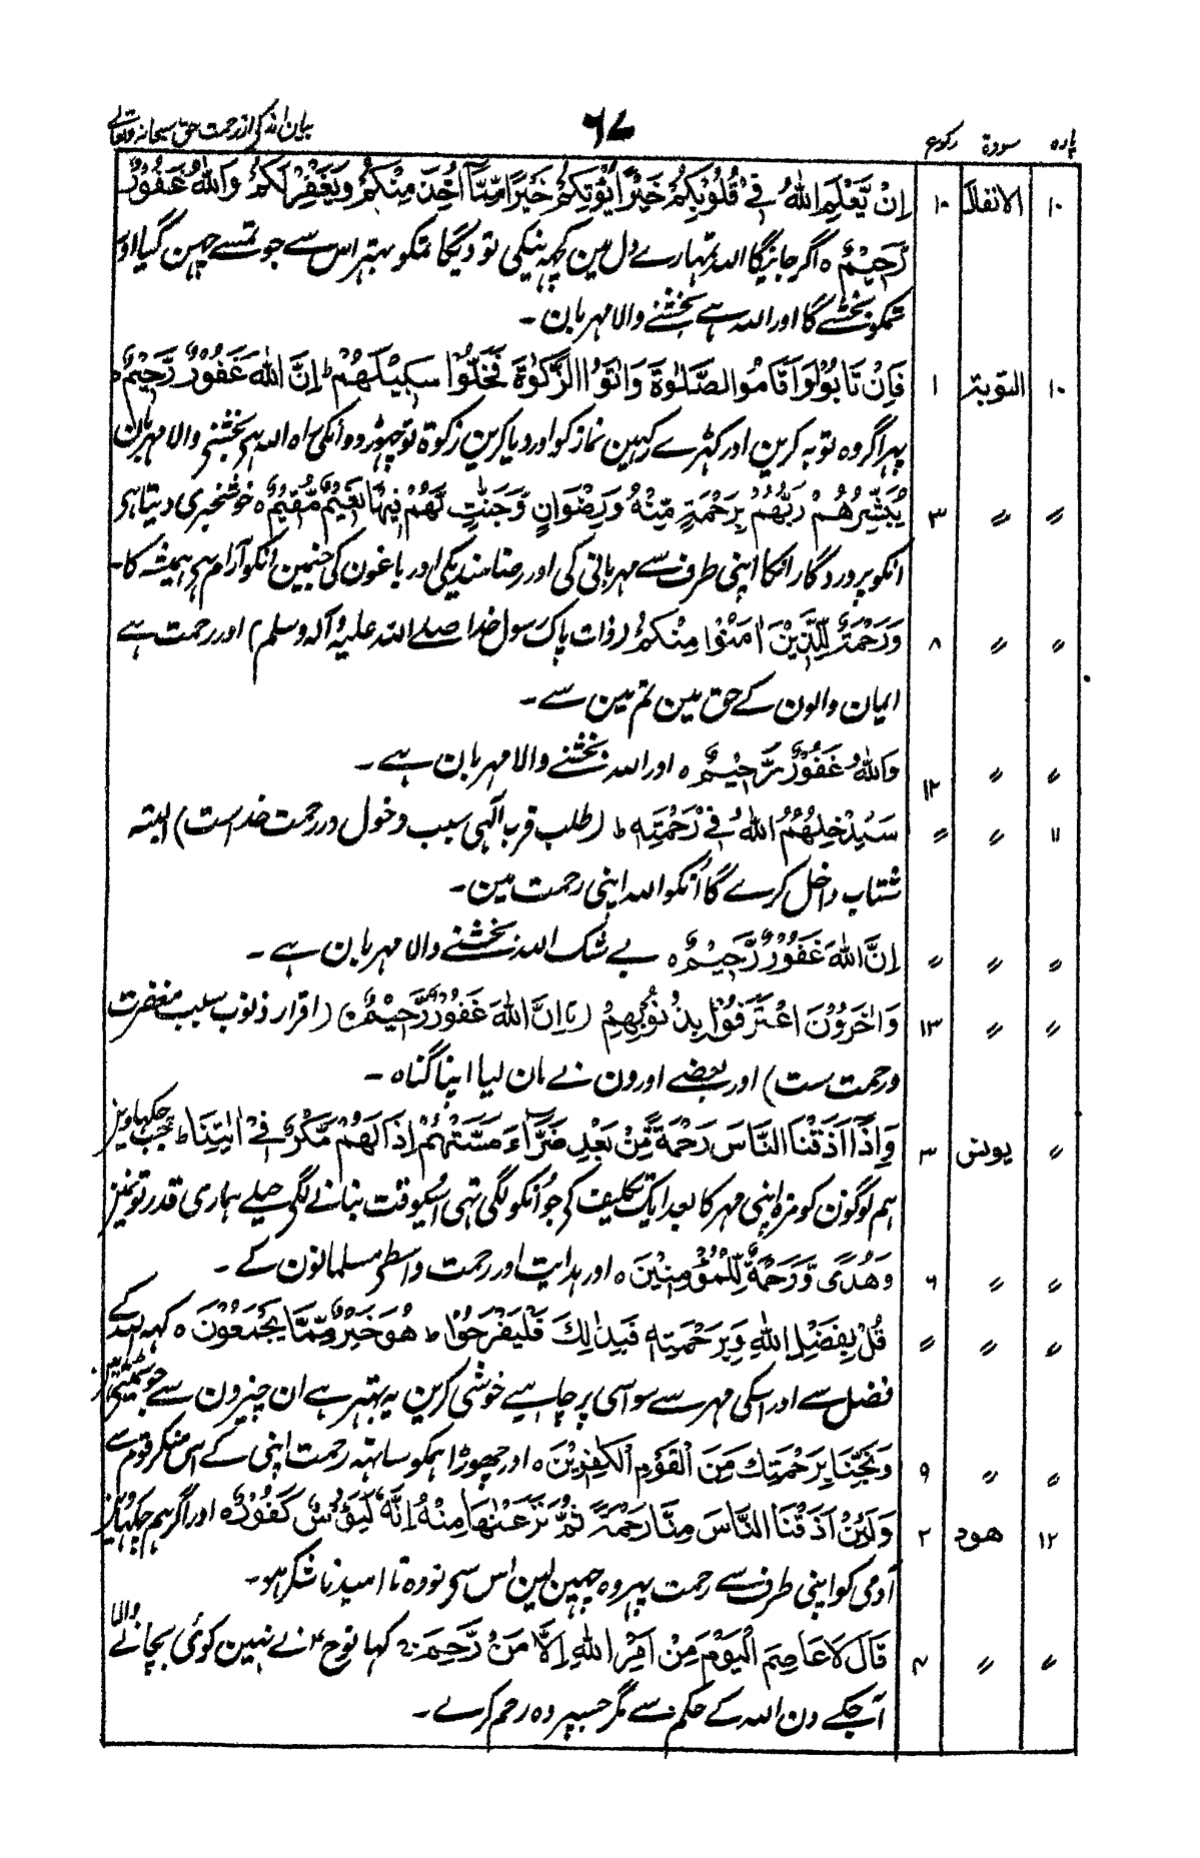 پارہ سورۃ رکوع ۶۷ بیان اندکی از رحمت حق سبحانہ وتعالے
۱۰ الانفال ۱۰ اِنْ يَّعْلَمِ اللّٰهُ فِيْ قُلُوْبِكُمْ خَيْرًا يُّؤْتِكُمْ خَيْرًا مِّمَّآ اُخِذَ مِنْكُمْ وَيَغْفِرْ لَكُمْ وَاللّٰهُ غَفُوْرٌ
رَّحِيْمٌ ہ اگر جانیگا اللہ تمہارے دل مین کچہہ نیکی تو دیگا تمکو بہتر اس سے جو تمسے چہن گیا اور
تمکو بخشے گا اور اللہ ہے بخشنے والا مہربان ۔
۱۰ التوبۃ ۱ فَاِنْ تَابُوْا وَاَقَامُوا الصَّلٰوةَ وَاٰتَوُا الزَّكٰوةَ فَخَلُّوْا سَبِيْلَهُمْ ط اِنَّ اللّٰهَ غَفُوْرٌ رَّحِيْمٌ ط
پہر اگر وہ توبہ کرین اور کہڑے رکہین نماز کو اور دیا کرین زکوۃ تو چہوڑ دو انکی راہ اللہ ہی بخشنے والا مہربان
〃 〃 ۳ يُبَشِّرُهُمْ رَبُّهُمْ بِرَحْمَةٍ مِّنْهُ وَرِضْوَانٍ وَّجَنّٰتٍ لَّهُمْ فِيْهَا نَعِيْمٌ مُّقِيْمٌ ہ خوشخبری دیتا ہی
انکو پروردگار انکا اپنی طرف سے مہربانی کی اور رضامندیکی اور باغون کی جنمین انکو آرام ہی ہمیشہ کا۔
〃 〃 ۸ وَرَحْمَةٌ لِّلَّذِيْنَ اٰمَنُوْا مِنْكُمْ (ذات پاک رسول خدا صلے اللہ علیہ وآلہ وسلم) اور رحمت ہے
ایمان والون کے حق مین تم مین سے ۔
〃 〃 ۱۲ وَاللّٰهُ غَفُوْرٌ رَّحِيْمٌ ہ اور اللہ بخشنے والا مہربان ہے ۔
۱۱ 〃 〃 سَيُدْخِلُهُمُ اللّٰهُ فِيْ رَحْمَتِهٖ ط (طلب قرب الٰہی سبب دخول در رحمت خداست) البتہ
شتاب داخل کرے گا اُنکو اللہ اپنی رحمت مین۔
〃 〃 〃 اِنَّ اللّٰهَ غَفُوْرٌ رَّحِيْمٌ ہ بے شک اللہ بخشنے والا مہربان ہے ۔
〃 〃 ۱۳ وَاٰخَرُوْنَ اعْتَرَفُوْا بِذُنُوْبِهِمْ (تا اِنَّ اللّٰهَ غَفُوْرٌ رَّحِيْمٌ ہ) (اقرار ذنوب سبب مغفرت
ورحمت ست) اور بعضے اورون نے مان لیا اپنا گناہ ۔
〃 یونس ۳ وَاِذَآ اَذَقْنَا النَّاسَ رَحْمَةً مِّنْ بَعْدِ ضَرَّآءَ مَسَّتْهُمْ اِذَا لَهُمْ مَّكْرٌ فِيْٓ اٰيَاتِنَا ط جب چکہاوین
ہم لوگون کو مزہ اپنی مہر کا بعد ایک تکلیف کی جو اُنکو لگی تہی اسیوقت بنانے لگی حیلے ہماری قدرتونمین
〃 〃 ۶ وَهُدًى وَّرَحْمَةٌ لِّلْمُؤْمِنِيْنَ ہ اور ہدایت اور رحمت واسطی مسلمانون کے ۔
〃 〃 〃 قُلْ بِفَضْلِ اللّٰهِ وَبِرَحْمَتِهٖ فَبِذٰلِكَ فَلْيَفْرَحُوْا ط هُوَ خَيْرٌ مِّمَّا يَجْمَعُوْنَ ہ کہہ اللہ کے
فضل سے اور اسکی مہر سے سو اسی پر چاہیے خوشی کرین یہ بہتر ہے ان چیزون سے جو
〃 〃 ۹ وَنَجِّنَا بِرَحْمَتِكَ مِنَ الْقَوْمِ الْكٰفِرِيْنَ ہ اور چھوڑا ہمکو ساتہہ رحمت اپنی کے اس منکر قوم سے
۱۲ هود ۲ وَلَئِنْ اَذَقْنَا النَّاسَ مِنَّا رَحْمَةً ثُمَّ نَزَعْنٰهَا مِنْهُ اِنَّهٗ لَيَئُوْسٌ كَفُوْرٌ ہ اور اگر ہم چکہائین
آدمی کو اپنی طرف سے رحمت پہر وہ چہین لین اس سی تو وہ نا امید ناشکر ہو۔
〃 〃 ۴ قَالَ لَا عَاصِمَ الْيَوْمَ مِنْ اَمْرِ اللّٰهِ اِلَّا مَنْ رَّحِمَ ۚ کہا نوح ؑ نے نہین کوئی بچانے والا
آجکے دن اللہ کے حکم سے مگر جسپر وہ رحم کرے ۔